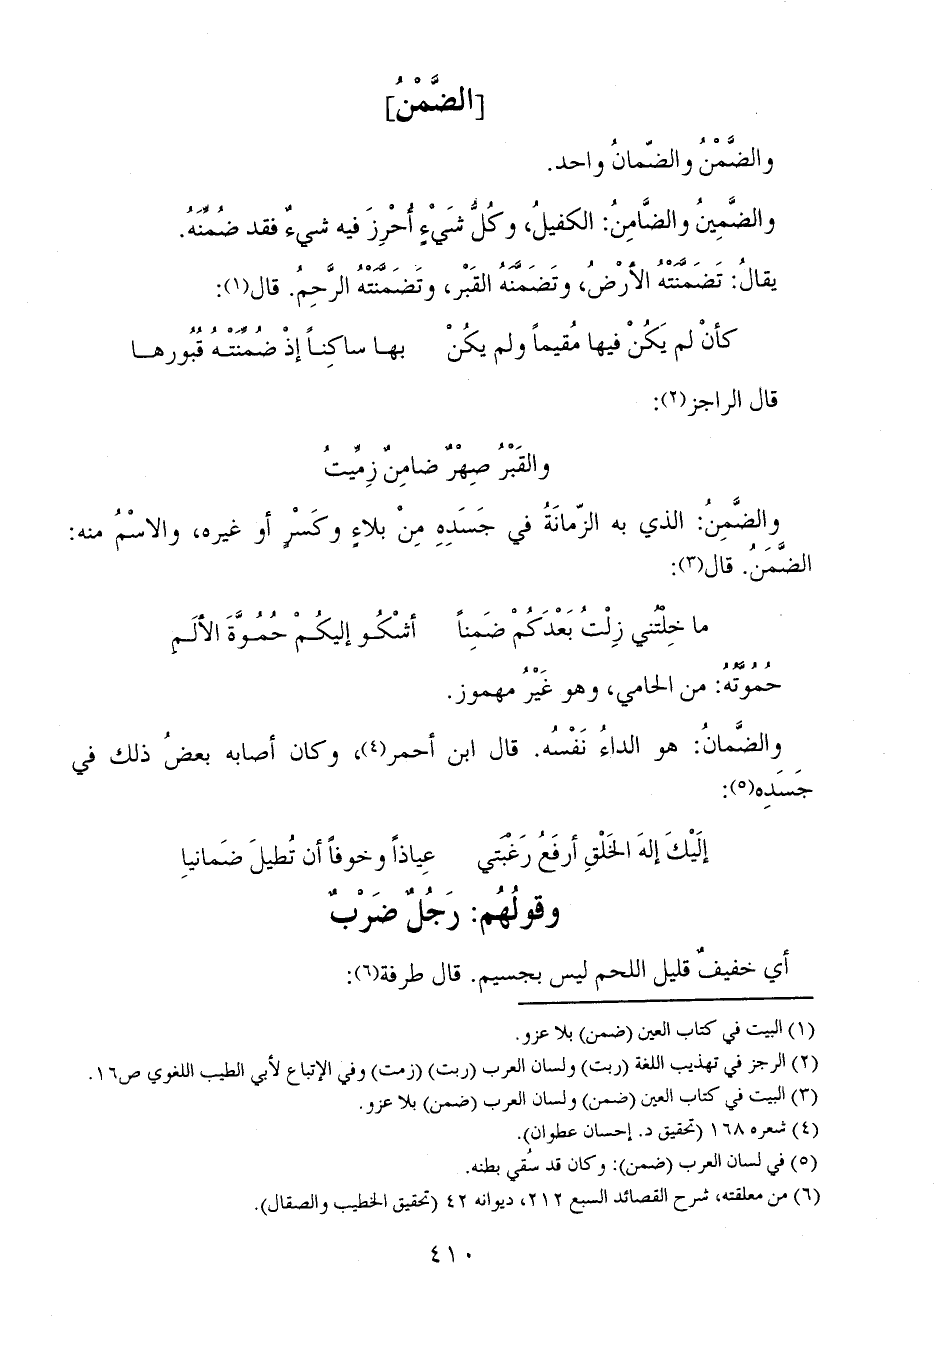 [الضَّمْنُ]
والضَّمْنُ والضّمانُ واحد.
والضَّمِينُ والضَّامِنُ: الكفيلُ، وكُلُّ شَيْءٍ أُحْرِزَ فيه شيءٌ فقد ضُمِّنَهُ.
يقالُ: تَضَمَّنَتْهُ الأَرْضُ، وتَضَمَّنَهُ القَبْر، وتَضَمَّنَتْهُ الرَّحِمُ. قال(١):
كأنْ لم يَكُنْ فيها مُقيماً ولم يكُنْ بهـا ساكِنـاً إذْ ضُمِّنَتْـهُ قُبُورهـا
قال الراجز(٢):
والقَبْرُ صِهْرٌ ضامِنٌ زِمِّيتُ
والضَّمِنُ: الذي به الزّمانَةُ في جَسَدِهِ مِنْ بلاءٍ وكَسْرٍ أو غيره، والاسْمُ منه:
الضَّمَنُ. قال(٣):
ما خِلْتُني زِلْتُ بَعْدَكُمْ ضَمِناً أشْكُـو إليكُـمْ حُمُـوَّةَ الأَلَـمِ
حُمُوَّتُهُ: من الحامي، وهو غَيْرُ مهموز.
والضَّمانُ: هو الداءُ نَفْسُه. قال ابن أحمر(٤)، وكان أصابه بعضُ ذلك في
جَسَدِه(٥):
إلَيْكَ إلهَ الخَلْقِ أرفَعُ رَغْبَتي عِياذاً وخوفاً أن تُطيلَ ضَمانيا
وقولُهُم: رَجُلٌ ضَرْبٌ
أي خفيفٌ قليل اللحم ليس بجسيم. قال طرفة(٦):
(١) البيت في كتاب العين (ضمن) بلا عزو.
(٢) الرجز في تهذيب اللغة (ربت) ولسان العرب (ربت) (زمت) وفي الإتباع لأبي الطيب اللغوي ص١٦.
(٣) البيت في كتاب العين (ضمن) ولسان العرب (ضمن) بلا عزو.
(٤) شعره ١٦٨ (تحقيق د. إحسان عطوان).
(٥) في لسان العرب (ضمن): وكان قد سُقي بطنه.
(٦) من معلقته، شرح القصائد السبع ٢١٢، ديوانه ٤٢ (تحقيق الخطيب والصقال).
٤١٠